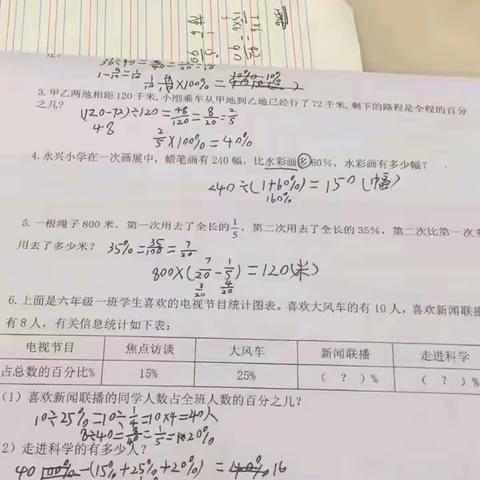 36÷40=
1-9/10=1/10
3.甲乙两地相距120千米,小刚乘车从甲地到乙地已经行了72千米,剩下的路程是全程的百分
之几?
(120-72)÷120=48/120=8/20=2/5
48
2/5×100%=40%
4.永兴小学在一次画展中，蜡笔画有240幅，比水彩画多60%，水彩画有多少幅？
240÷(1+60%)=150(幅)
160%
5.一根绳子800米，第一次用去了全长的1/5，第二次用去了全长的35%，第二次比第一次多
用去了多少米？ 35%=35/100=7/20
800×(7/20-1/5)=120(米)
4/20
6.上面是六年级一班学生喜欢的电视节目统计图表。喜欢大风车的有10人，喜欢新闻联播
有8人，有关信息统计如下表：
电视节目 焦点访谈 大风车 新闻联播 走进科学
占总数的百分比% 15% 25% (？)% (？)%
(1)喜欢新闻联播的同学人数占全班人数的百分之几？
10÷25%=10÷1/4=10×4=40人
8÷40=8/40=1/5=20%
(2)走进科学的有多少人？
40 100%-(15%+25%+20%)=40% 16